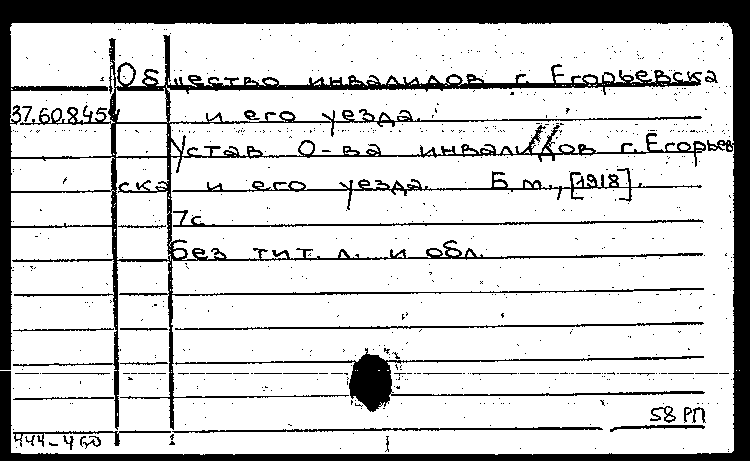 Общество инвалидов г. Егорьевска
37.60.845
и его уезда.
Устав О-ва инвалидов г. Егорьев
ска и его уезда. Б.м., [1918].
7с.
без тит. л. и обл.
58 РП